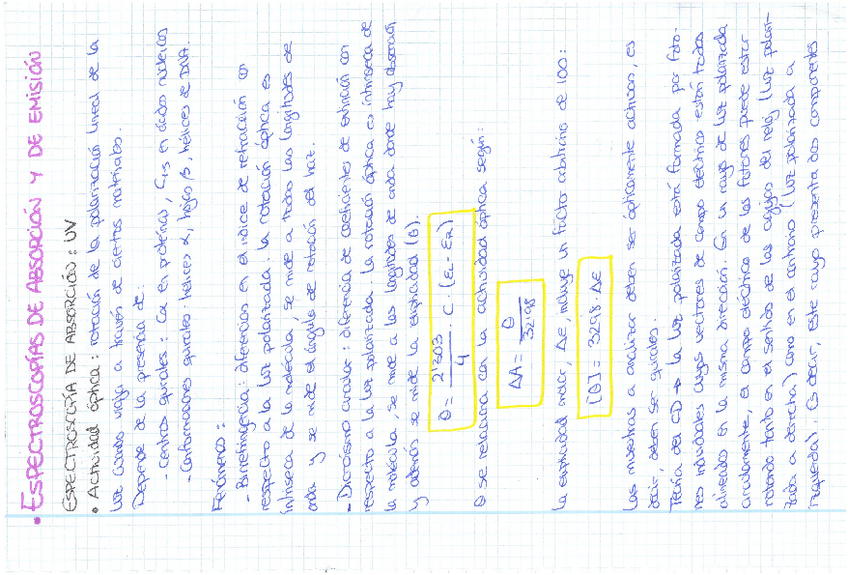 • ESPECTROSCOPÍAS DE ABSORCIÓN Y DE EMISIÓN
ESPECTROSCOPÍA DE ABSORCIÓN: UV
• Actividad óptica: rotación de la polarización lineal de la
luz cuando viaja a través de ciertos materiales.
Depende de la presencia de:
- Centros quirales: Cα en proteínas, en ácidos nucleicos
- Conformaciones quirales: hélices α, hojas β, hélices de DNA.
Fenómenos:
- Birrefringencia: diferencias en el índice de refracción con
respecto a la luz polarizada. La rotación óptica es
intrínseca de la molécula, se mide a todas las longitudes de
onda y se mide el ángulo de rotación del haz.
- Dicroísmo circular: diferencia de coeficientes de extinción con
respecto a la luz polarizada. La rotación óptica es intrínseca de
la molécula, se mide a las longitudes de onda donde hay absorción
y además se mide la elipticidad (θ).
θ = 2'303 / 4 · C · (εL - εR)
θ se relaciona con la actividad óptica según:
ΔA = θ / 32'98
La elipticidad molar, Δε, incluye un factor arbitrario de 100:
[θ] = 3298 · Δε
Las muestras a analizar deben ser ópticamente activas, es
decir, deben ser quirales.
Teoría del CD → la luz polarizada está formada por foto-
nes individuales cuyos vectores de campo eléctrico están todos
alineados en la misma dirección. En un rayo de luz polarizada
circularmente, el campo eléctrico de los fotones puede estar
rotando tanto en el sentido de las agujas del reloj (luz polari-
zada a derecha) como en el contrario (luz polarizada a
izquierda). Es decir, este rayo presenta dos componentes